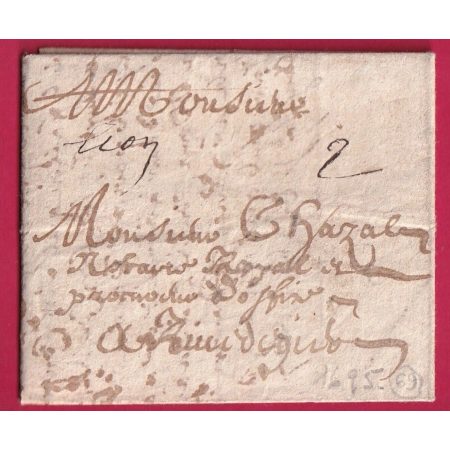 A Monsieur
Lion 2
Monsieur Chazal
Notaire Royal et
procureur d'office
A
1695. 69